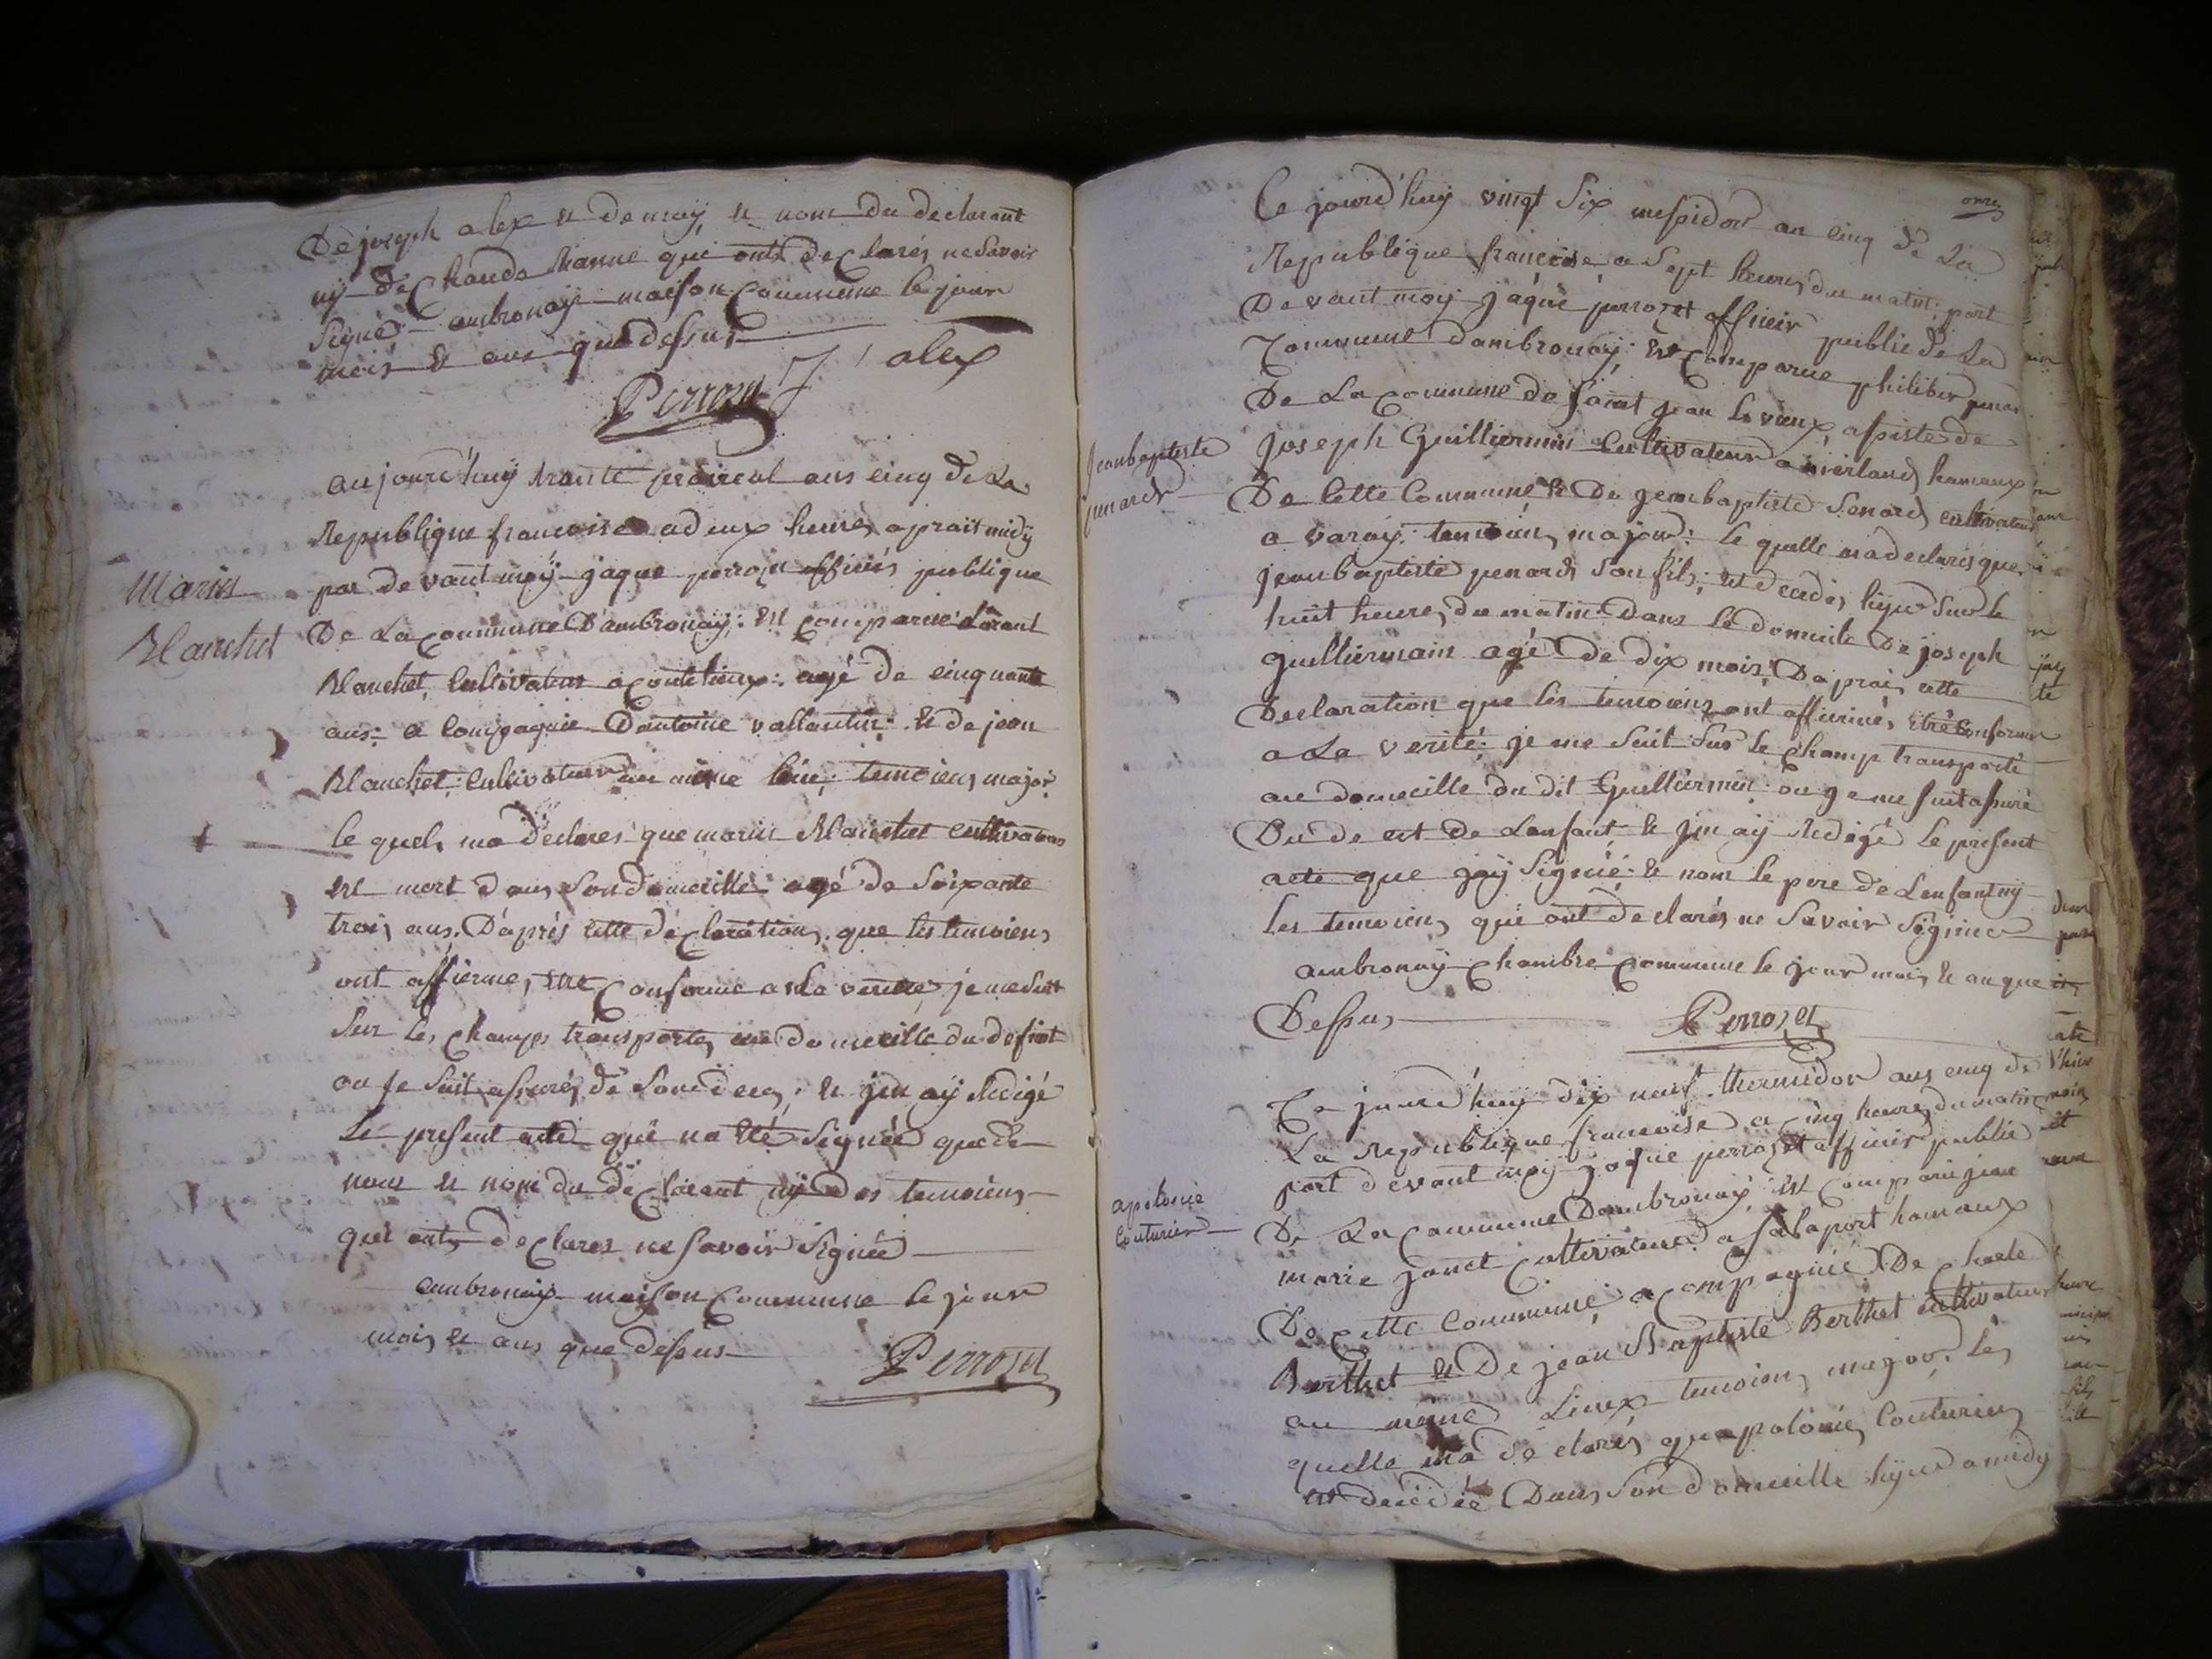 De joseph alex et de moy, et nom du declarant
ny de Chanda Manne qui ontt declarés ne Savoir
Signé; ambronay maison Commune le jour
mois et ans que dessus
J alex
Perrozet
aujourd'huy trante prairial ans cinq de La
Republique francoise a deux heures aprait midy
par devant moy jaque perrozet officiés publique
De La Commune D'ambronay; est comparue Lorant
Blanchet, Cultivateur a Coutelieux: agé de cinquante
ans: a Compagnie D'antoine vallantin: et de jean
Blanchet; Cultivateur au même lieu; temoiens major
le quels ma declares que marin Blanchet cultivateur
est mort dans Son domicille agé de Soixante
trois ans. D'après cette déclaration, que les temoiens
ont affierme, être Conforme a La verité je me Suit
Sur les champs transporte, au domicille du defint
ou je Suit assurés, de Son deces, et j'en ay Redigé
Le present acte qui na été Signée que de
nous et nom du declarant ny des temoiens
qui onts declares ne Savoir Signée
ambronay maison Commune le jour
mois et ans que dessus
Perrozet
Marin
Blanchet
onze
Ce jourd'huy vingt Six messidor an cinq de La
Republique francoise, a Sept heures du matin; part
Devant moy jaque perrozet officier public de La
Commune d'ambronay; est Comparue philiber penard
De La Commune de Saint jean le vieux, assiste de
joseph Guilliermin Cultivateur a merland hameaux
De Cette Commune et De jean baptiste Senard cultivateur
a varay: temoiens major: le quelle ma declarés que
jean baptiste penard Son fils; est decedés hijer Sur le
huit heures du matin Dans le domicile De joseph
guilliermain agé de dix mois; Daprais cette
Declaration que les temoiens ont affiermés, être Conforme
a La verité; je me Suit Sur le Champ transporté
au domicille du dit Guilliermin ou je me Suit assuré
Du de est de Lenfant, et j'en ay Redigé le present
acte que jay Signié: et nom le pere de Lenfant ny
les temoiens qui ont declarés ne Savoir Signier
ambronay Chambre Commune le jour mois et an que
Dessus
Perrozet
Ce jourd'huy dix neuf thermidor ans cinq de
La Republique francoise a cinq heures du matin
part devant moy jaque perrozet officier public
De La Commune D'ambronay; est Comparue jean
marie janet Cultivateur a Salaport hameaux
De cette Commune; a Compagnié De charle
Berthet et De jean Baptiste Berthet cultivateur
au même Lieux temoiens major. les
quelle ma declarés quapolonie Couturier
est decedée Dans Son domicille hijer a midy
jean baptiste
penard
apolonie
Couturier